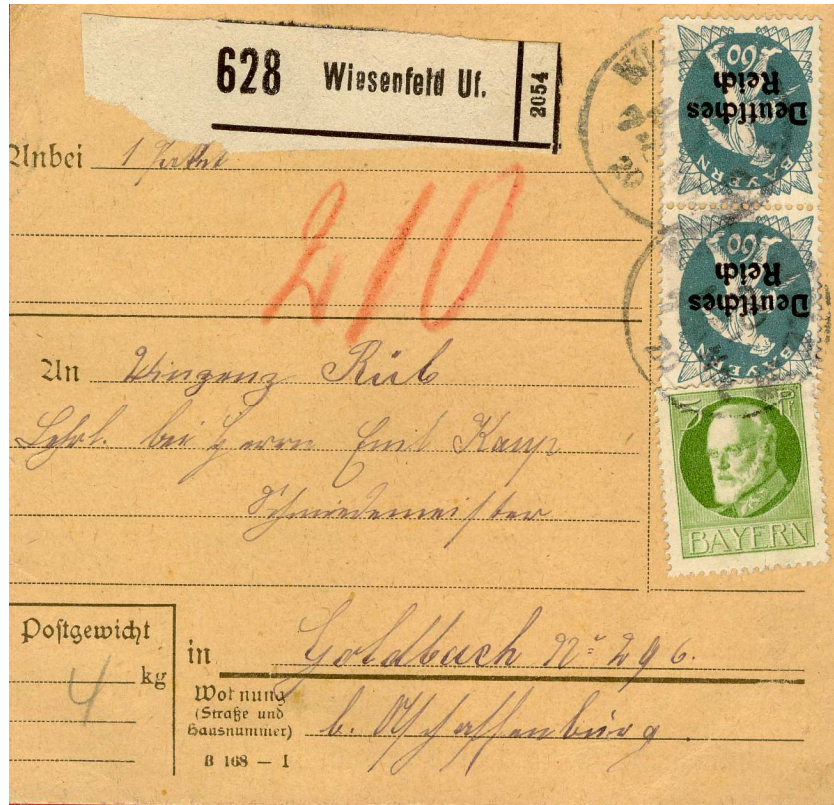 628 Wiesenfeld Uf. 2054
60
Deutsches
Reich
BAYERN
60
Deutsches
Reich
BAYERN
5 Pf
BAYERN
Anbei 1 Paket
210
An Vinzenz Rüb
Lehrl. bei Herrn Emil Kaup
Schmiedemeister
Postgewicht
4 kg
in Goldbach No 296.
Wohnung
(Straße und
Hausnummer)
b. Aschaffenburg.
B 168 — I